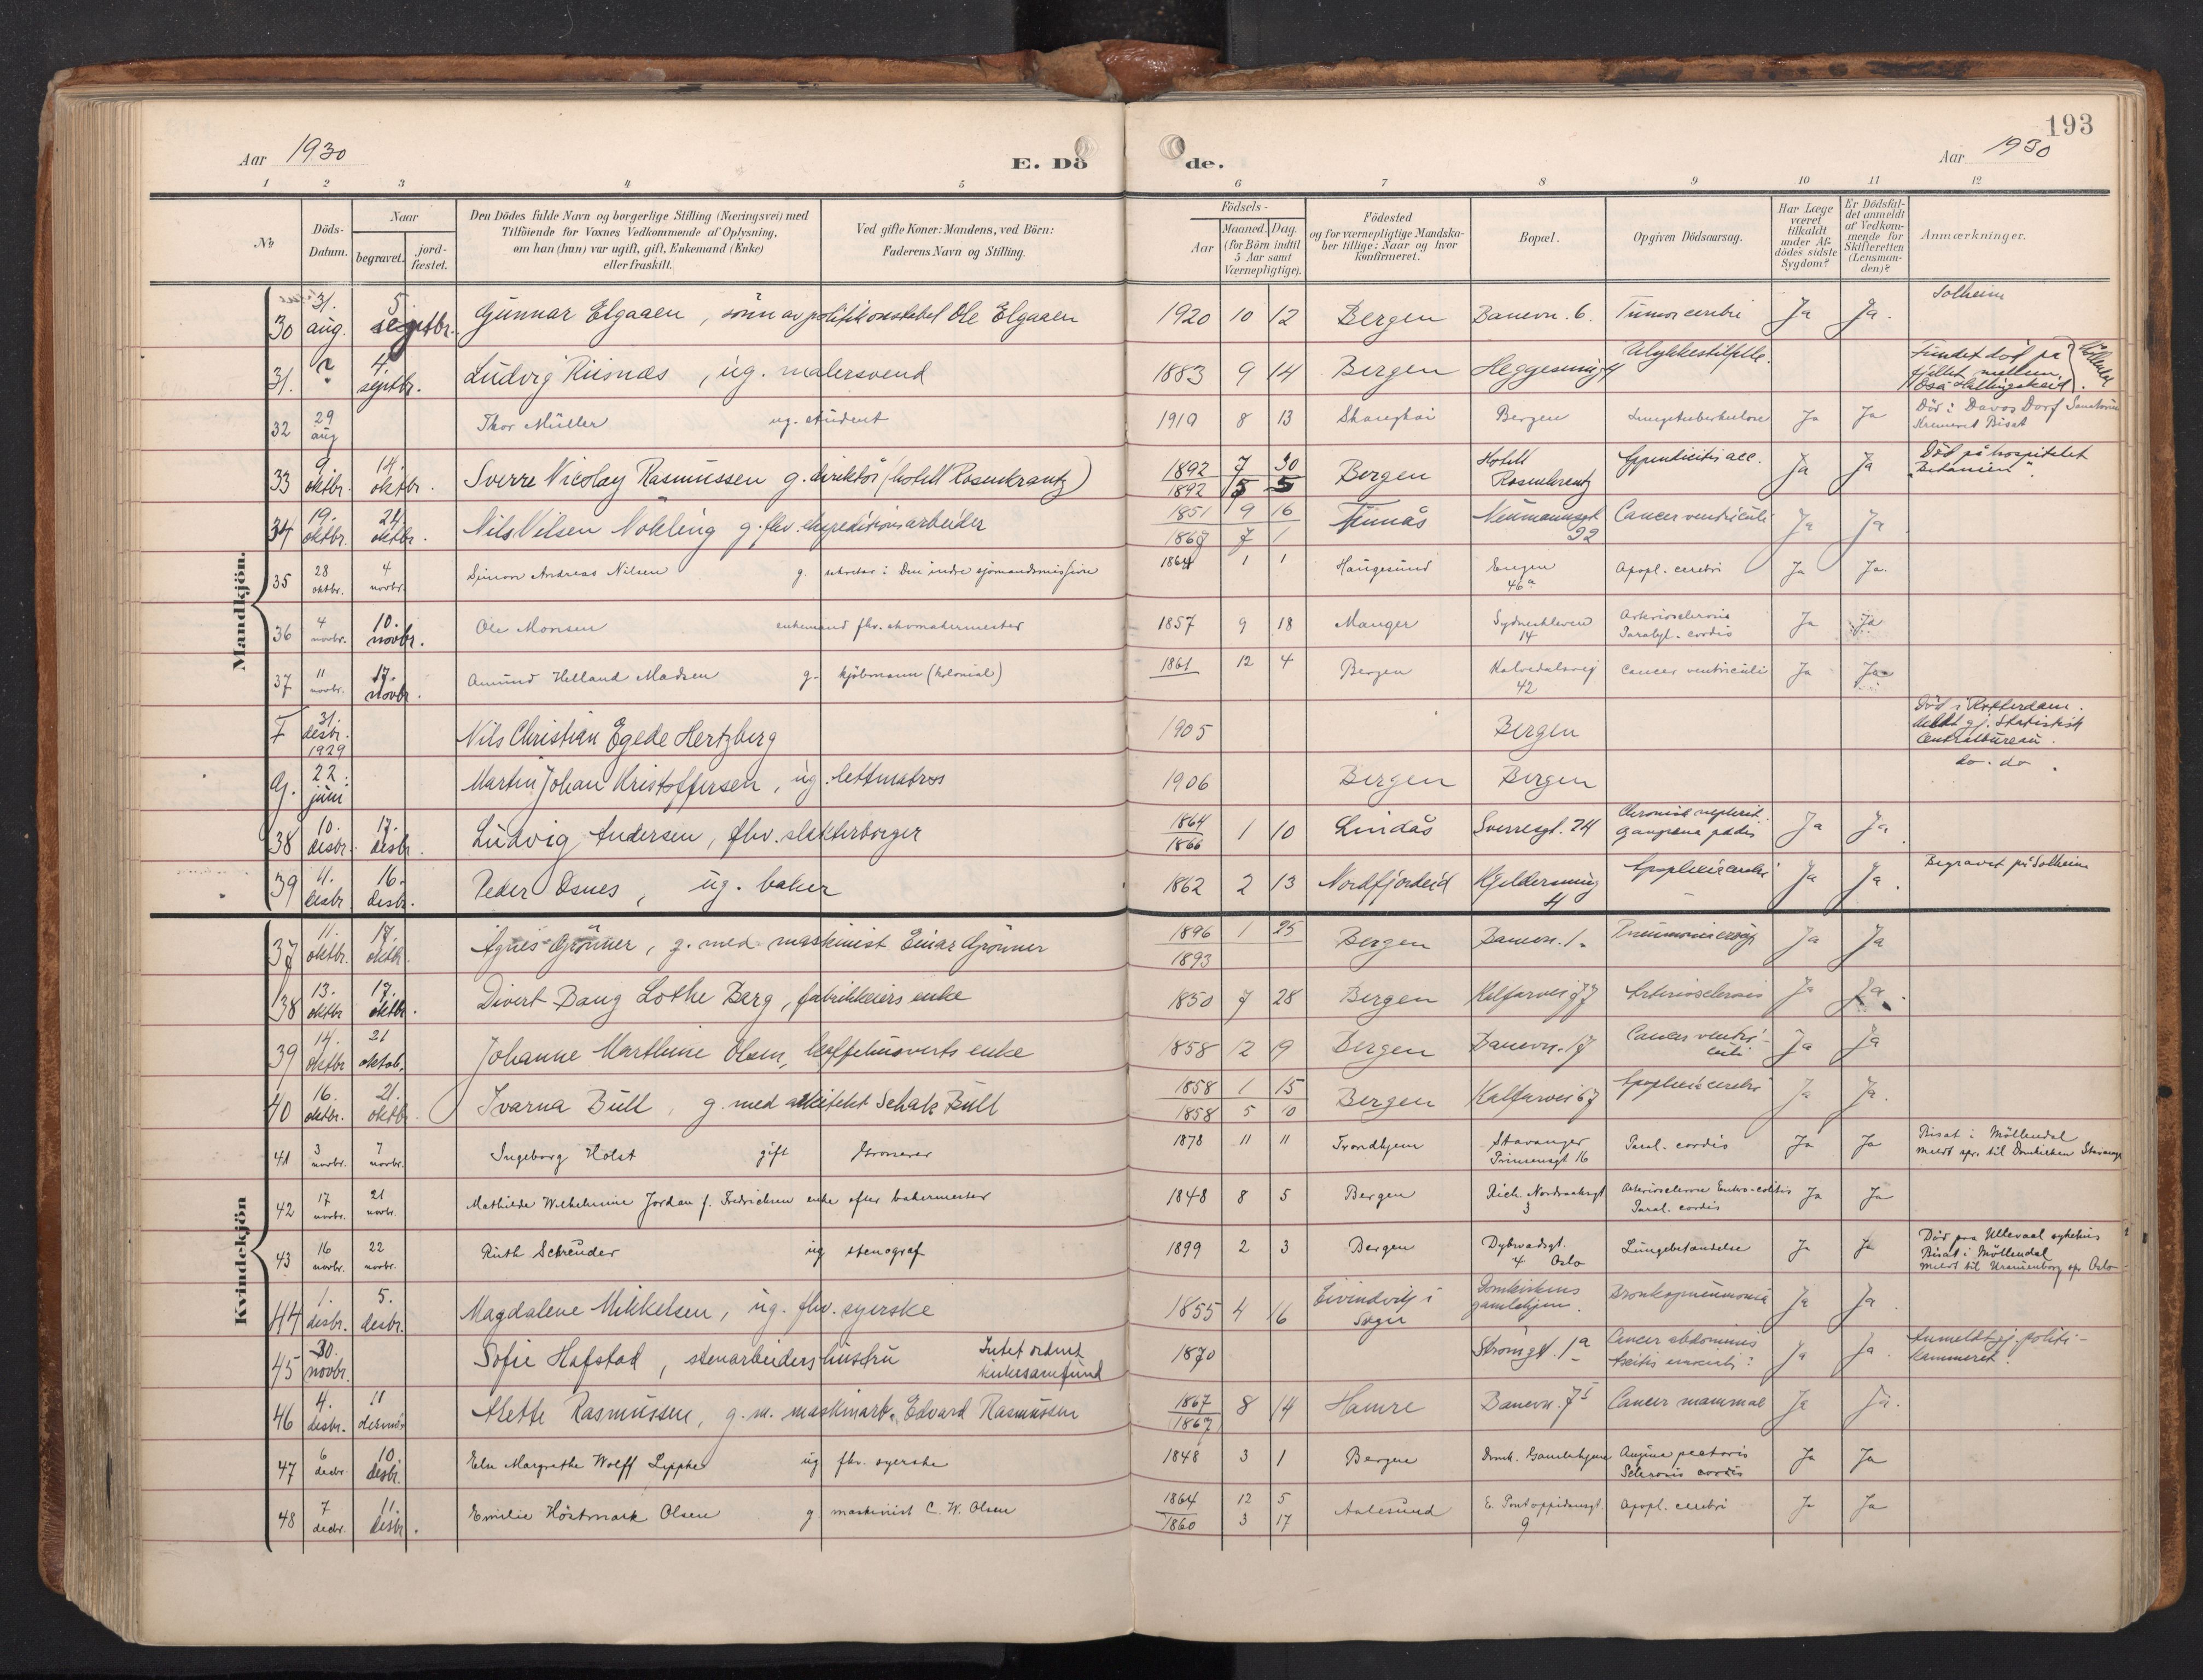 193
Aar 1930
E. Dö de.
Aar 1930
1 2 3 4 5 6 7 8 9 10 11 12
№
Döds-Datum.
Naar
begravet.
jord-fæstet.
Den Dödes fulde Navn og borgerlige Stilling (Næringsvei) med
Tilföiende for Voxnes Vedkommende af Oplysning,
om han (hun) var ugift, gift, Enkemand (Enke)
eller fraskilt.
Ved gifte Koner: Mandens, ved Börn:
Faderens Navn og Stilling.
Födsels-
Aar
Maaned. Dag.
(for Börn indtil
5 Aar samt
Værnepligtige).
Födested
og for værnepligtige Mandska-
ber tillige: Naar og hvor
konfirmeret.
Bopæl.
Opgiven Dödsaarsag.
Har Læge
været
tilkaldt
under Af-
dödes sidste
Sygdom?
Er Dödsfal-
det anmeldt
af Vedkom-
mende for
Skifteretten
(Lensman-
den)?
Anmærkninger.
Mandkjön.
30 31. aug. 5 septbr. Gunnar Elgaaen, sönn av politikonstabel Ole Elgaaen 1920 10 12 Bergen Banevn. 6. Tumor cerebri Ja Ja. Solheim
31. ? " 4. septbr. Ludvig Riisnæs, ug. malersvend 1883 9 14 Bergen Heggesmug 4 Ulykkestilfelle. Fundet död på
fjellet mellem
Osa - Hallingskeid.
32 29 aug Thor Müller ug. student 1919 8 13 Shanghai Bergen Lungetuberkulose Ja Ja Död i Davos Dorf Sanatorium
Kremeret Bisat
33 9 oktbr. 14. oktbr. Sverre Nicolay Rasmussen g. direktör (hotell Rosenkrantz) 1892 7 30 Bergen Hotell Rosenkrantz Appendicitis acc. Ja Ja Död på hospitalet
"Betanien".
1892 5 5
34 19. oktbr. 24 oktbr. Nils Nilsen Nökling g. fhv. ekspeditionsarbeider 1851 9 16 Neumannsgt 22 Cancer ventriculi Ja Ja.
1867 7 1
35 28 oktbr. 4 novbr. Simon Andreas Nilsen g. sekretær i Den indre sjömandsmission 1864 1 1 Haugesund Engen 46a Apopl. cerebri Ja Ja.
36 4 novbr. 10. novbr. Ole Monsen enkemand fhv. skomakermester 1857 9 18 Manger Sydneskleven 14 Arteriosclerosis
Paralys. cordis Ja Ja
37 11 novbr. 17. novbr. Amund Helland Madsen g. kjöbmann (kolonial) 1861 12 4 Bergen Kalvedalsvej 42 Cancer ventriculi Ja Ja
F 31. desbr. 1929 Nils Christian Egede Hertzberg 1905 Bergen Död i Rotterdam.
Meldt gj. Statistisk
Centralbureau.
G. 22. juni Martin Johan Kristoffersen, ug. lettmatros 1906 Bergen Bergen do. do.
38 10. desbr. 17. desbr. Ludvig Andersen, fhv. slakterborger 1864 1 10 Lindås Sverresgt. 24 Chronisk nephrit.
gangrena pedis Ja Ja.
1866
39 4. desbr 16. desbr. Peder Osnes, ug. baker 1862 2 13 Nordfjordeid Kjeldersmug 4 Apoplexia cerebri Ja Ja. Begravet på Solheim
Kvindekjön
37 11. oktbr. 17. oktbr. Agnes Grönner, g. med maskinist Einar Grönner 1896 1 25 Bergen Banevn. 1. Ja Ja
1893
38 13. oktbr 17. oktbr. Divert Baug Lothe Berg, fabrikkeiers enke 1850 7 28 Bergen Kalfarvei 77 Arteriosclerosis Ja Ja.
39 14. oktbr 21 oktob. Johanne Marthine Olsen, kaffehusverts enke 1858 12 9 Bergen Banevn. 17 Cancer ventri-
culi Ja Ja
40 16. oktbr. 21. oktbr. Ivarna Bull, g. med arkitekt Schak Bull 1858 1 15 Bergen Kalfarvei 67 Apoplexia cerebri Ja Ja.
1858 5 10
41 3 novbr. 7 novbr. Ingeborg Holst gift Grosserer 1878 11 11 Trondhjem Stavanger
Prinsensgt 16 Paral. cordis Ja Ja Bisat i Möllendal
meldt spr. til Domkirken Stavanger
42 17 novbr. 21 novbr. Mathilde Wilhelmine Jordan f. Fredrichsen enke efter bakermester 1848 8 5 Bergen Rich. Nordraaksgt 3 Arteriosclerose Entero-colitis
Paral. cordis Ja Ja
43 16 novbr. 22 novbr. Ruth Schreuder ug stenograf 1899 2 3 Bergen Dybwadsgt.
4 Oslo Lungebetændelse Ja Ja Död paa Ullevaal sykehus
Bisat i Möllendal
meldt til Uranienborg spr Oslo
44 1. desbr. 5. desbr. Magdalene Mikkelsen, ug. fhv. syerske 1855 4 16 Eivindvik i
Sogn Domkirkens
gamlehjem. Bronkopneumonia Ja Ja.
45 30. novbr. Sofie Hafstad, stenarbeiders hustru Intet ordnet
kirkesamfund 1870 Strömgt. 1a Cancer abdominis Ja Ja. Anmeldt gj. politi-
kammeret.
46 4. desbr. 11 Mette Rasmussen, g. m. maskinarb. Edvard Rasmussen 1867 8 14 Hamre Banevn. 7 Cancer mammae Ja Ja.
1867
47 6 decbr. 10. desbr. Elen Margrethe Wolff Zeppke ug fhv. syerske 1848 3 1 Bergen Domk. Gamlehjem Angina pectoris
Sclerosis cordis Ja Ja
48 7 decbr. 11. desbr. Emilie Höstmark Olsen g maskinist C. W. Olsen 1864 12 5 Aalesund E. Pontoppidansgt. 9 Apopl. cerebri Ja Ja
1860 3 17